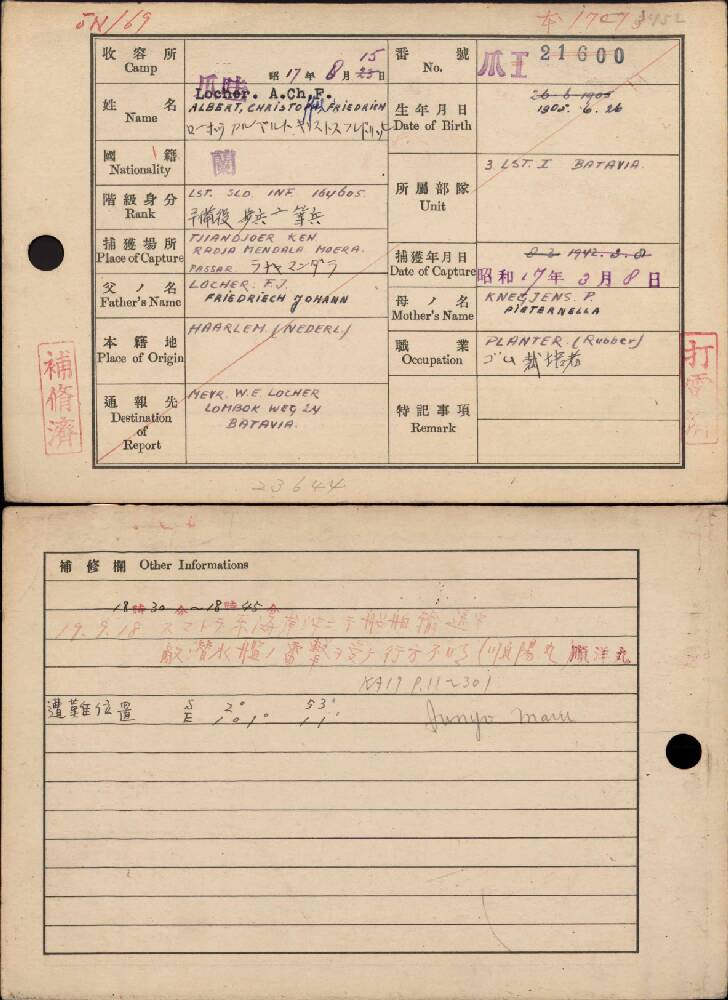 5N/69
本 1707
收容所
Camp
爪
昭17年8月15 23日
番號
No.
爪I 21600
姓名
Name
Locher. A.Ch.F.
ALBERT, CHRISTOPH, FRIEDRICH
生年月日
Date of Birth
26-6-1905
1905. 6. 26
國籍
Nationality
蘭
階級身分
Rank
LST. SLD. INF. 164605.
予備役 歩兵 二等兵
所屬部隊
Unit
3. LST. I BATAVIA.
捕獲場所
Place of Capture
TJIANDJOER KEN.
RADJA MENDALA MOERA.
PASSAR ラヂャマンダラ
捕獲年月日
Date of Capture
8-3 1942.3.8
昭和17年3月8日
父ノ名
Father's Name
LOCHER. F.J.
FRIEDRIECH JOHANN
母ノ名
Mother's Name
KNEGJENS. P.
PIETERNELLA
本籍地
Place of Origin
HAARLEM (NEDERL)
職業
Occupation
PLANTER. (Rubber)
ゴム 栽培者
通報先
Destination
of
Report
MEVR. W.E. LOCHER
LOMBOK WEG 24
BATAVIA.
特記事項
Remark
補脩濟
打
23644
補修欄 Other Informations
18時30分~18時45分
19.9.18 スマトラ東海岸沖ニテ船舶輸送中
敵潜水艦ノ雷撃ヲ受ケ行方不明 (順陽丸) 順洋丸
遭難位置 S 2° 53'
E 101° 11'
Junyo Maru